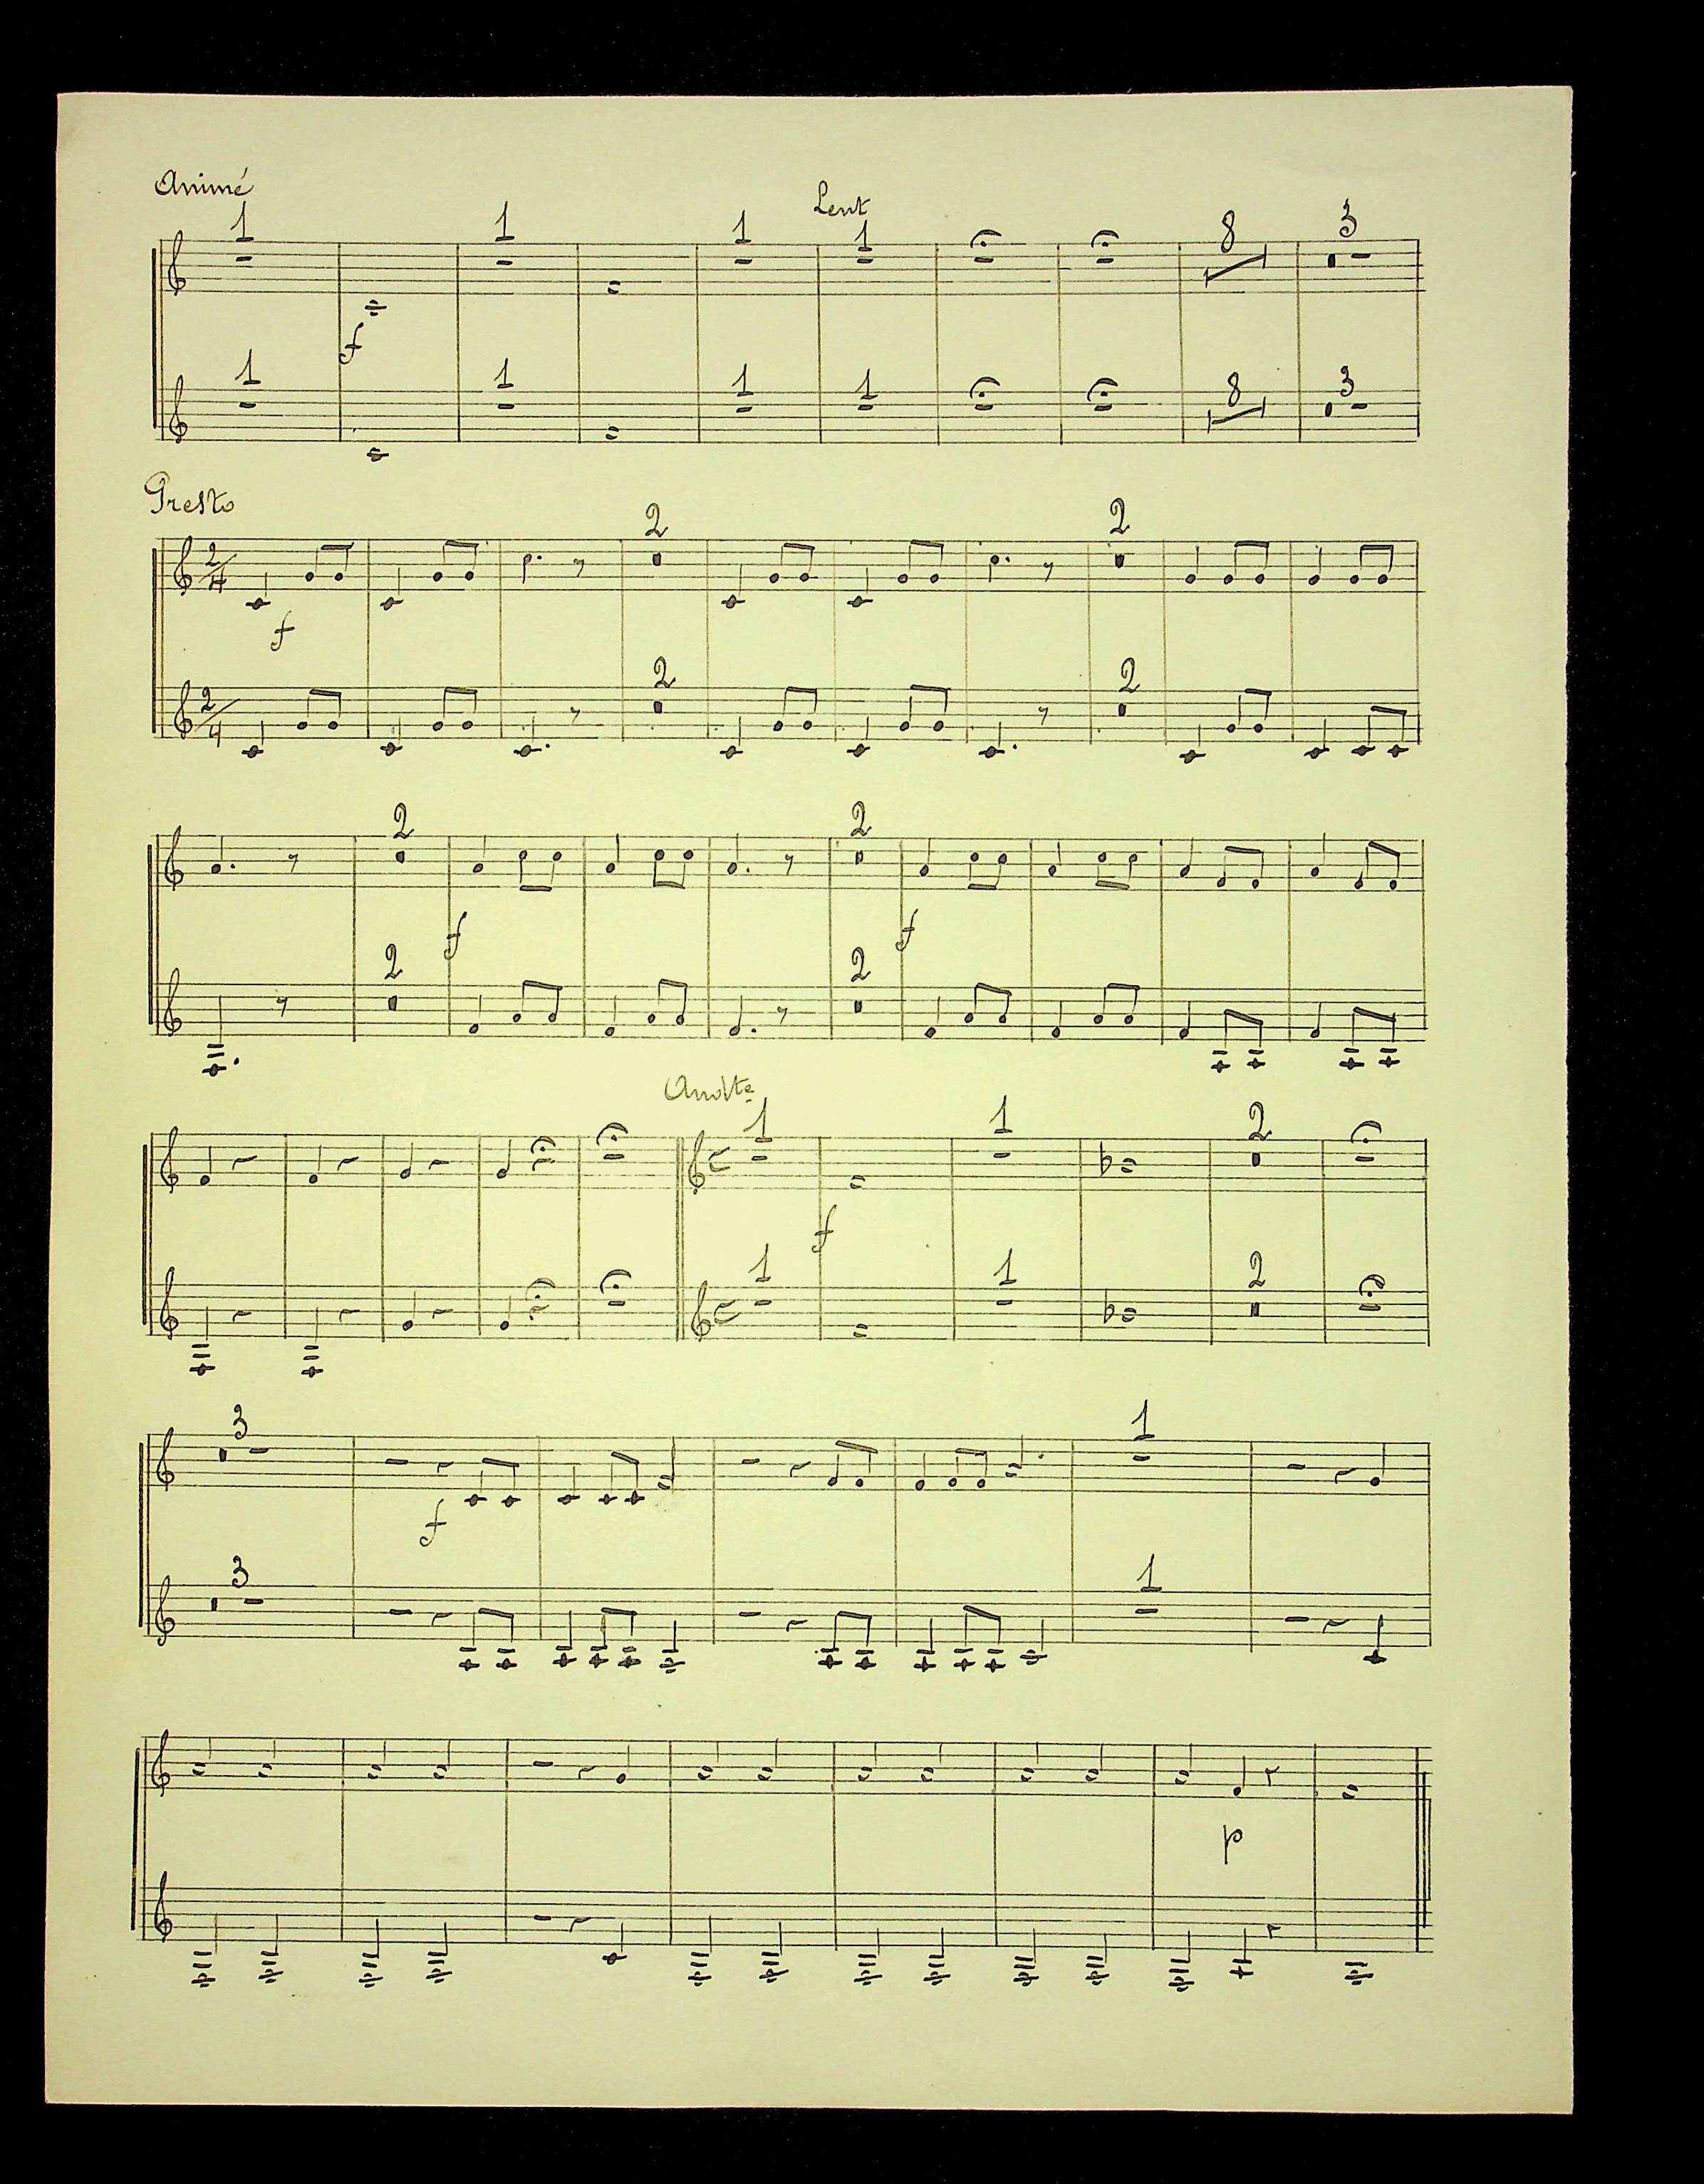 Animé
Lent
1 1 1 1 8 3
f
1 1 1 1 8 3
Presto
2 2
2/4
f
2 2
2/4
2 2
f f
2 2
Andte
1 1 2
f
1 1 2
3 1
f
3 1
p